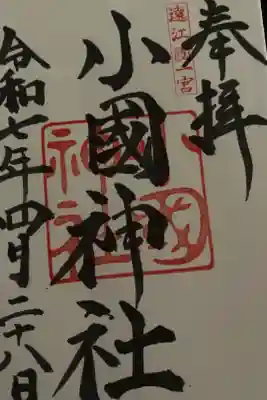 奉拝
遠江國一宮
小國神社
令和七年四月二十八日